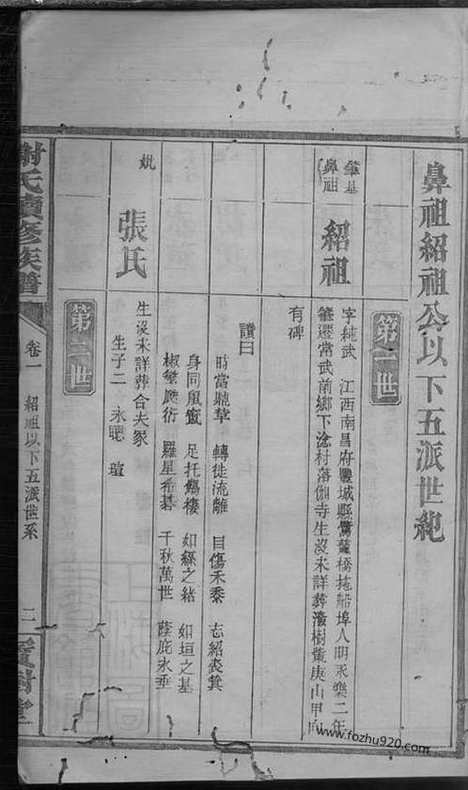 鼻祖紹祖公以下五派世紀
第一世
肇基
鼻祖
紹祖
字純武 江西南昌府豐城縣鷺鷥橋拖船埠人明永樂二年
肇遷常武前鄉下滄村落伽寺生沒未詳葬潑樹黨庚山甲向
有碑
讚曰
時當聽摯 轉徙流離 目傷禾黍 志紹裘箕
身同風竄 足托鷄棲 如絲之緒 如垣之基
椒繁瓞衍 羅星希碁 千秋萬世 蔭庇永垂
妣
張氏
生沒未詳葬合夫冢
生子二 永聰 瑄
第二世
謝氏續修族譜
卷一 紹祖以下五派世系
二
樹堂
www.fozhu920.com